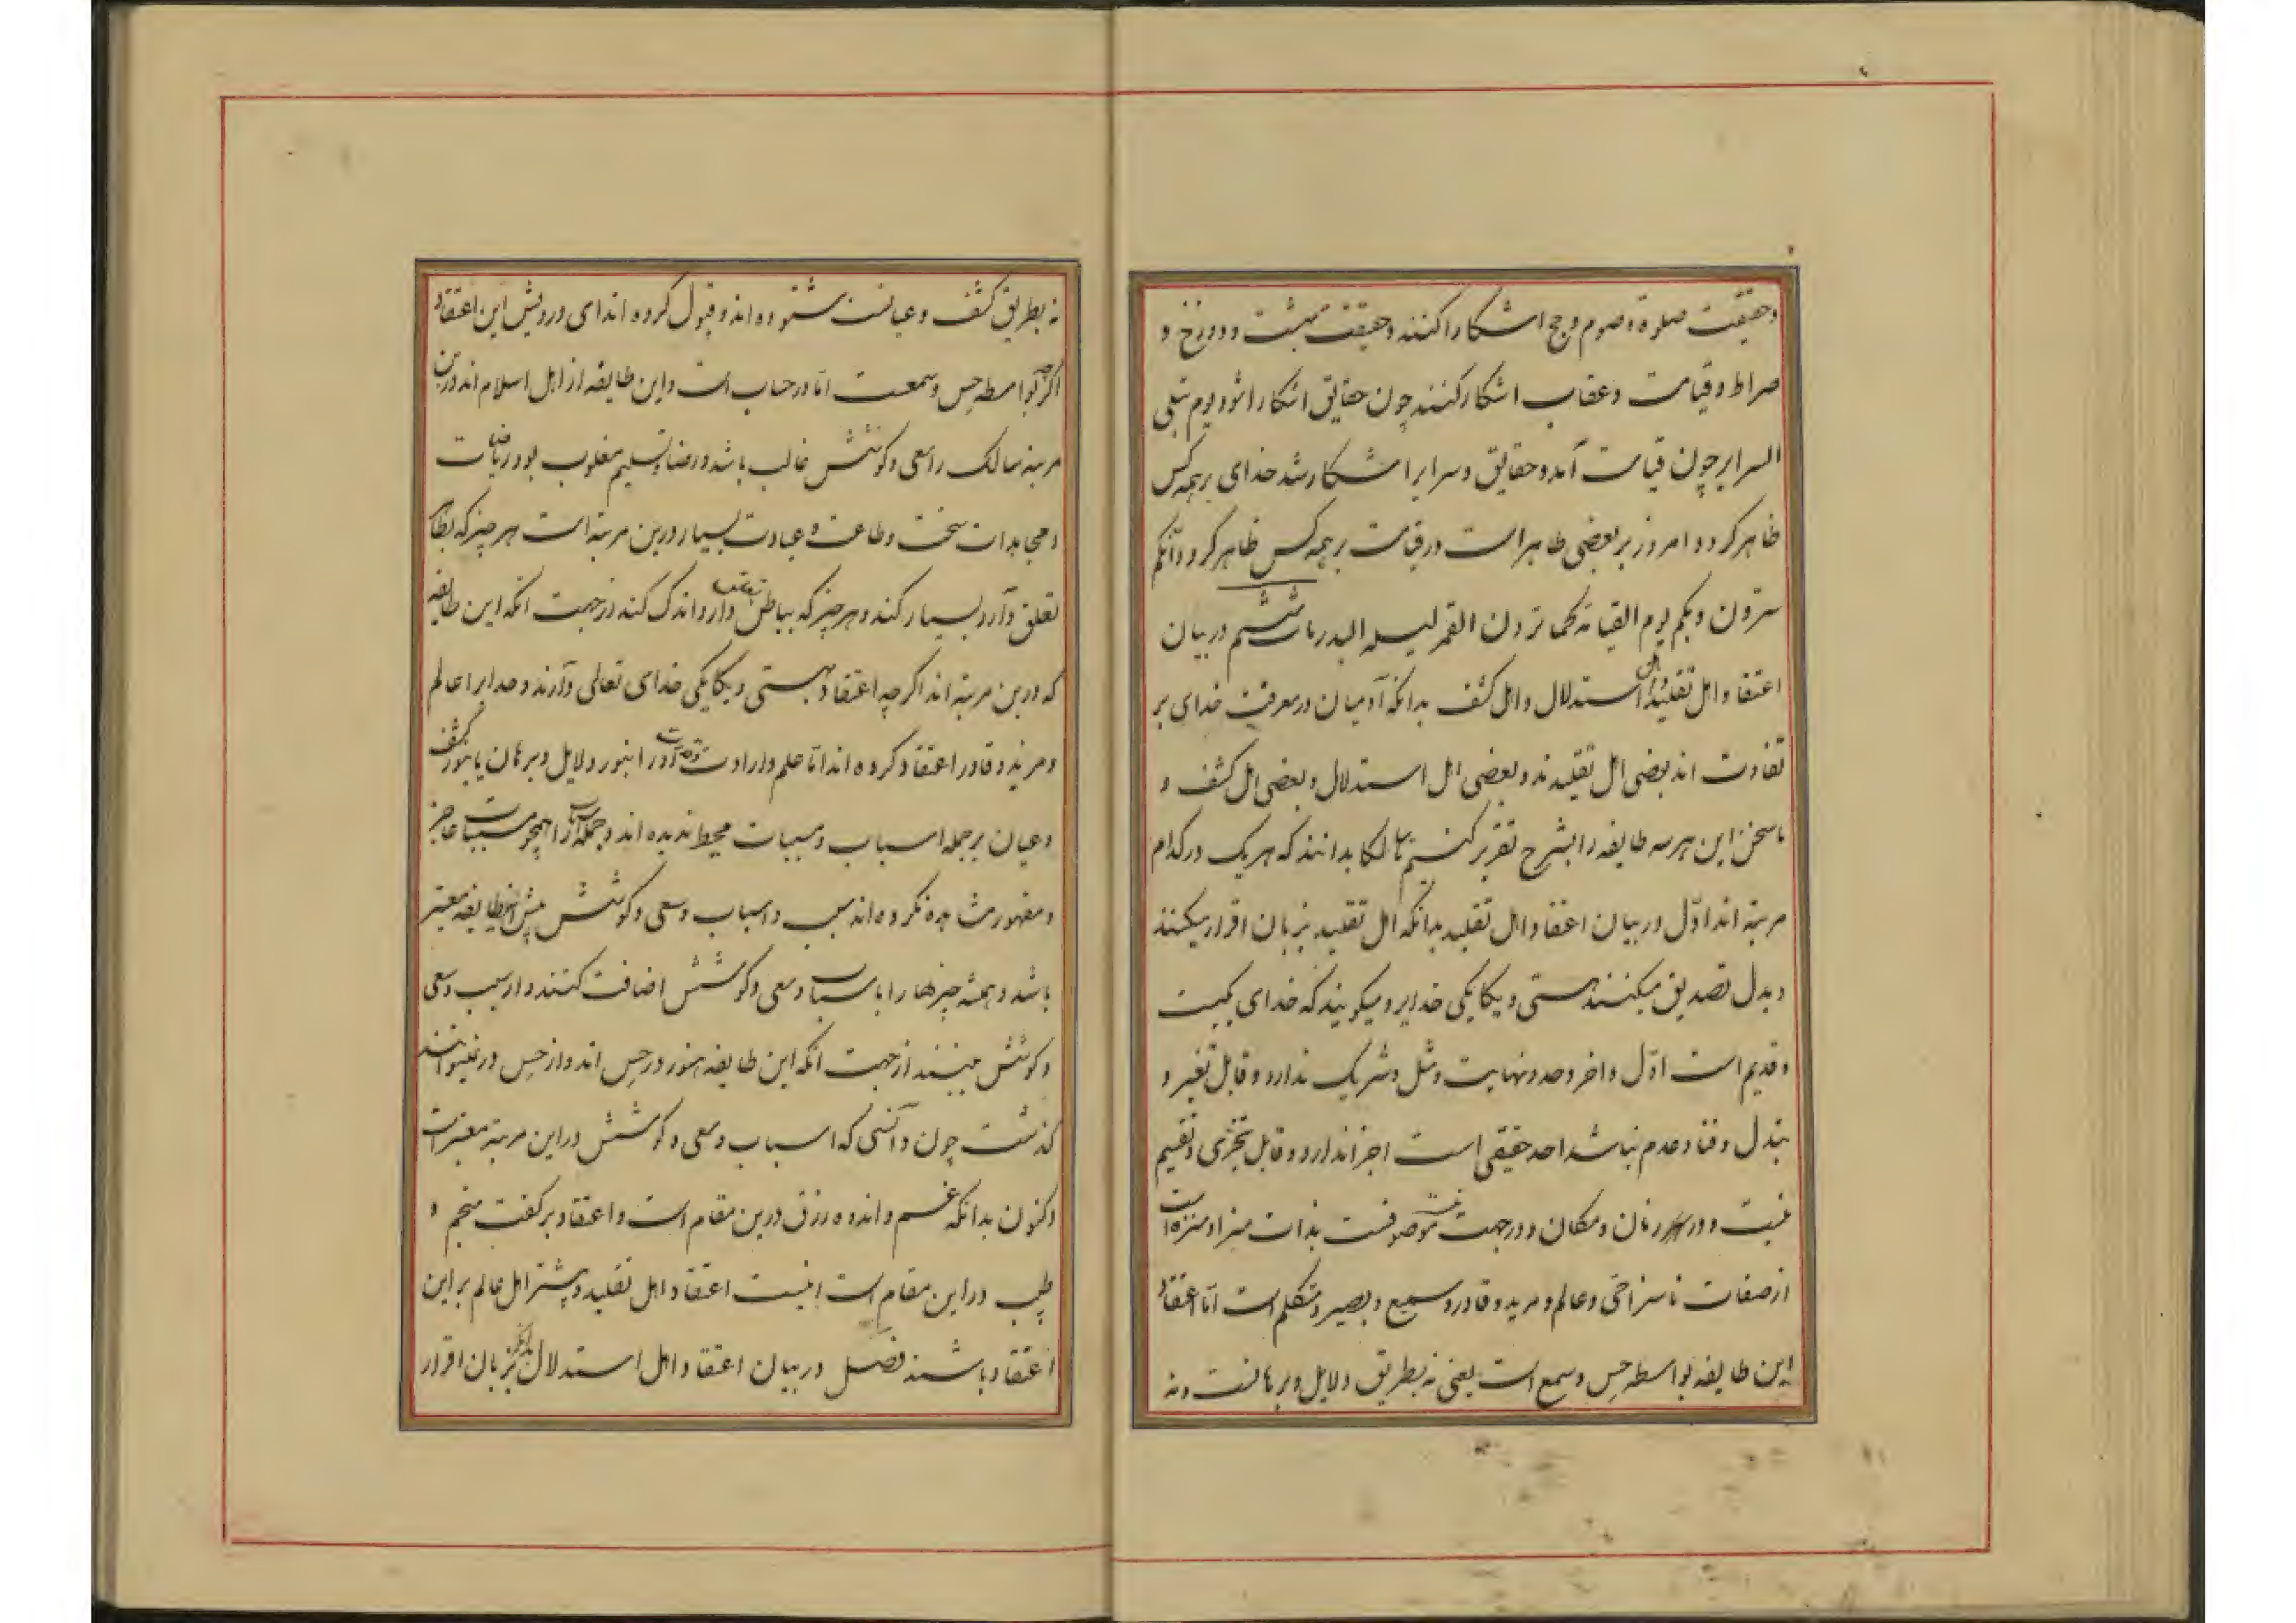 وحقیقت صلوة وصوم وحج اشکارا کنند وحقیقت بهشت ودوزخ و
صراط وقیامت وعقاب اشکار کنند چون حقایق اشکارا شود یوم تبلی
السرایر چون قیامت آمد وحقایق وسرایر اشکار شد خدای بر همه کس
ظاهر کردد امروز بر بعضی ظاهر است در قیامت بر همه کس ظاهر کردد وانکم
سترون ربکم یوم القیامة کما ترون القمر لیله البدر باب ششم در بیان
اعتقاد اهل تقلید و اهل استدلال و اهل کشف بدانکه آدمیان در معرفت خدای بر
تفاوت اند بعضی اهل تقلیدند وبعضی اهل استدلال وبعضی اهل کشف و
ما سخن این هر سه طایفه را بشرح تقریر کنیم تا سالکا بدانند که هر یک در کدام
مرتبه اند اوّل در بیان اعتقاد اهل تقلید بدانکه اهل تقلید بزبان اقرار میکنند
وبدل تصدیق میکنند هستی ویکانکی خدایرا ومیکویند که خدای یکیست
وقدیم است اوّل واخر وحد ونهایت ومثل وشریک ندارد وقابل تغیر و
تبدل وفنا وعدم نباشد احد حقیقی است اجزا ندارد وقابل تجزی وتقسیم
نیست ودر زمان ومکان ودر جهت نیست موصوفست بذات سزا ومنزه است
از صفات ناسزا حی وعالم ومرید وقادر وسمیع وبصیر ومتکلم است امّا اعتقاد
این طایفه بواسطه حِس وسمع است یعنی نه بطریق دلایل وبرهانست ونه
نه بطریق کشف وعیانست شنوده اند وقبول کرده اند ای درویش این اعتقاد
اکرچه بواسطه حِس وسمعست امّا در حساب است واین طایفه از اهل اسلام اند ودرین
مرتبه سالک را سعی وکوشش غالب باشد ورضا وتسلیم مغلوب بود ریاضات
ومجاهدات سخت وطاعت وعبادت بسیار درین مرتبه است هر چیز که بظا
تعلق دارد بسیار کند وهر چیز که بباطن تعلق دارد اندک کند از جهت انکه این طایفه
که درین مرتبه اند اکرچه اعتقاد بهستی ویکانکی خدای تعالی دارند وخدایرا عالم
ومرید وقادر اعتقاد کرده اند امّا علم وارادت وقدرت اورا بنور دلایل وبرهان یا بنور کشف
وعیان بر جمله اسباب ومسببات محیط ندیده اند وجمله اسباب را همچو مسببات عاجز
ومقهور مشاهده نکرده اند سبب واسباب وسعی وکوشش پیش این طایفه معتبر
باشد وهمه چیزها را باسباب وسعی وکوشش اضافت کنند واز سبب وسعی
وکوشش بینند از جهت انکه این طایفه هنوز در حِس اند واز حِس در نمیتوانند
کذشت چون دانستی که اسباب وسعی وکوشش در این مرتبه معتبر است
اکنون بدانکه غم واندوه رزق درین مقام است واعتقاد بر کفت منجم و
طبیب در این مقام است اینست اعتقاد اهل تقلید وبیشتر اهل عالم بر این
اعتقاد باشند فصل در بیان اعتقاد اهل استدلال بدانکه بزبان اقرار